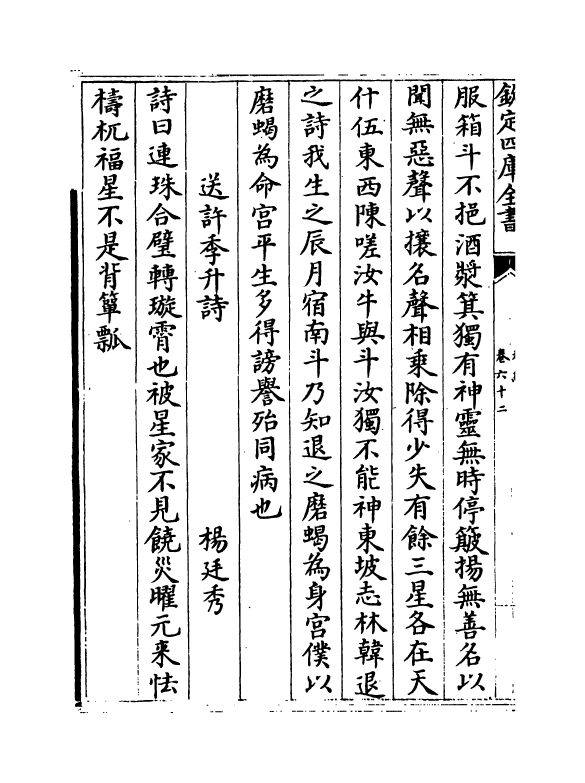 欽定四庫全書
卷六十二
服箱斗不挹酒漿箕獨有神靈無時停簸揚無善名以
聞無惡聲以攘名聲相乘除得少失有餘三星各在天
什伍東西陳嗟汝牛與斗汝獨不能神東坡志林韓退
之詩我生之辰月宿南斗乃知退之磨蝎為身宮僕以
磨蝎為命宮平生多得謗譽殆同病也
送許季升詩　楊廷秀
詩曰連珠合璧轉璇霄也被星家不見饒災曜元来怯
檮杌福星不是背簞瓢